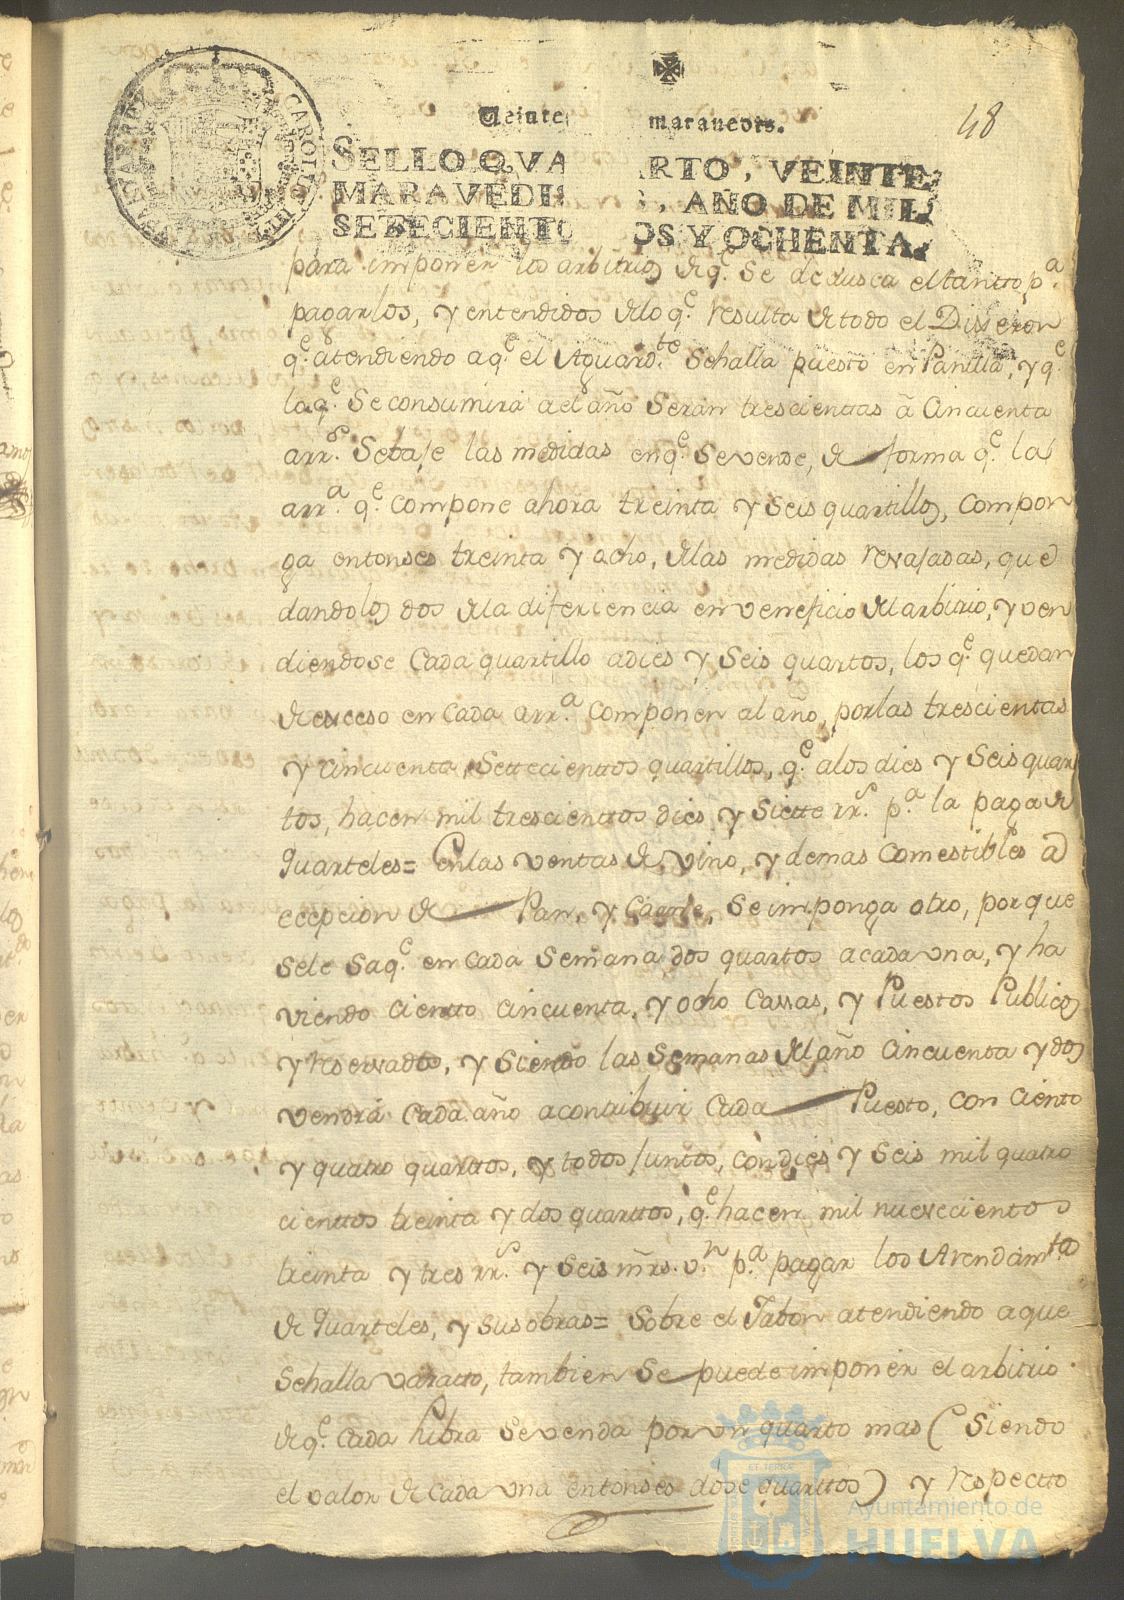 48
Veinte maravedis.
SELLO QVARTO, VEINTE
MARAVEDIS, AÑO DE MIL
SETECIENTOS Y OCHENTA.
para imponer los arbitrios de q.e se dedusca el tantto p.a
pagarlos, y entendidos delo q.e resulta de todo el Disseron
q.e atendiendo aq.e el Aguard.te se halla puesto en Panilla, y q.e
laq.e se consumira a el año seran trescientas â cincuenta
arr.s Se baje las medidas en q.e se vende, de forma q.e la
arr.a q.e compone ahora treinta y seis quartillos, compon
ga entonses treinta y ocho, delas medidas revajadas, que
dando los dos dela diferiencia en veneficio del arbitrio, y ven
diendose Cada quartillo a dies y seis quartos, los q.e quedan
de exceso en Cada arr.a componen al año, por las trescientas
y cincuenta, Settecienttos quartillos, q.e a los dies y seis quar
tos, hacen mil trescienttos dies y siette rr.s p.a la paga de
quarteles= En las ventas de vino, y demas Comestibles a
ecepcion de Pan, y Carne, se imponga otro, por que
sele saq.e en cada semana dos quartos acada vna, y ha
viendo cientto cincuenta, y ocho Cassas, y Puestos Publicos
y reservados, y siendo las semanas del año cincuenta y dos
vendrá cada año a contribuir cada Puesto, con ciento
y quatro quarttos, y todos juntos, con dies y seis mil quatro
cienttos treinta y dos quarttos, q.e hacen mil nuevecientos
treinta y tres rr.s y seis mrs. v.n p.a pagar los Arendam.tos
de quarteles, y sus obras= Sobre el Jabon atendiendo a que
se halla varatto, tambien se puede imponer el arbitrio
de q.e cada libra se venda por vn quarto mas (siendo
el valor de cada vna entonses dose quarttos) y respectto
Ayuntamiento de
HUELVA